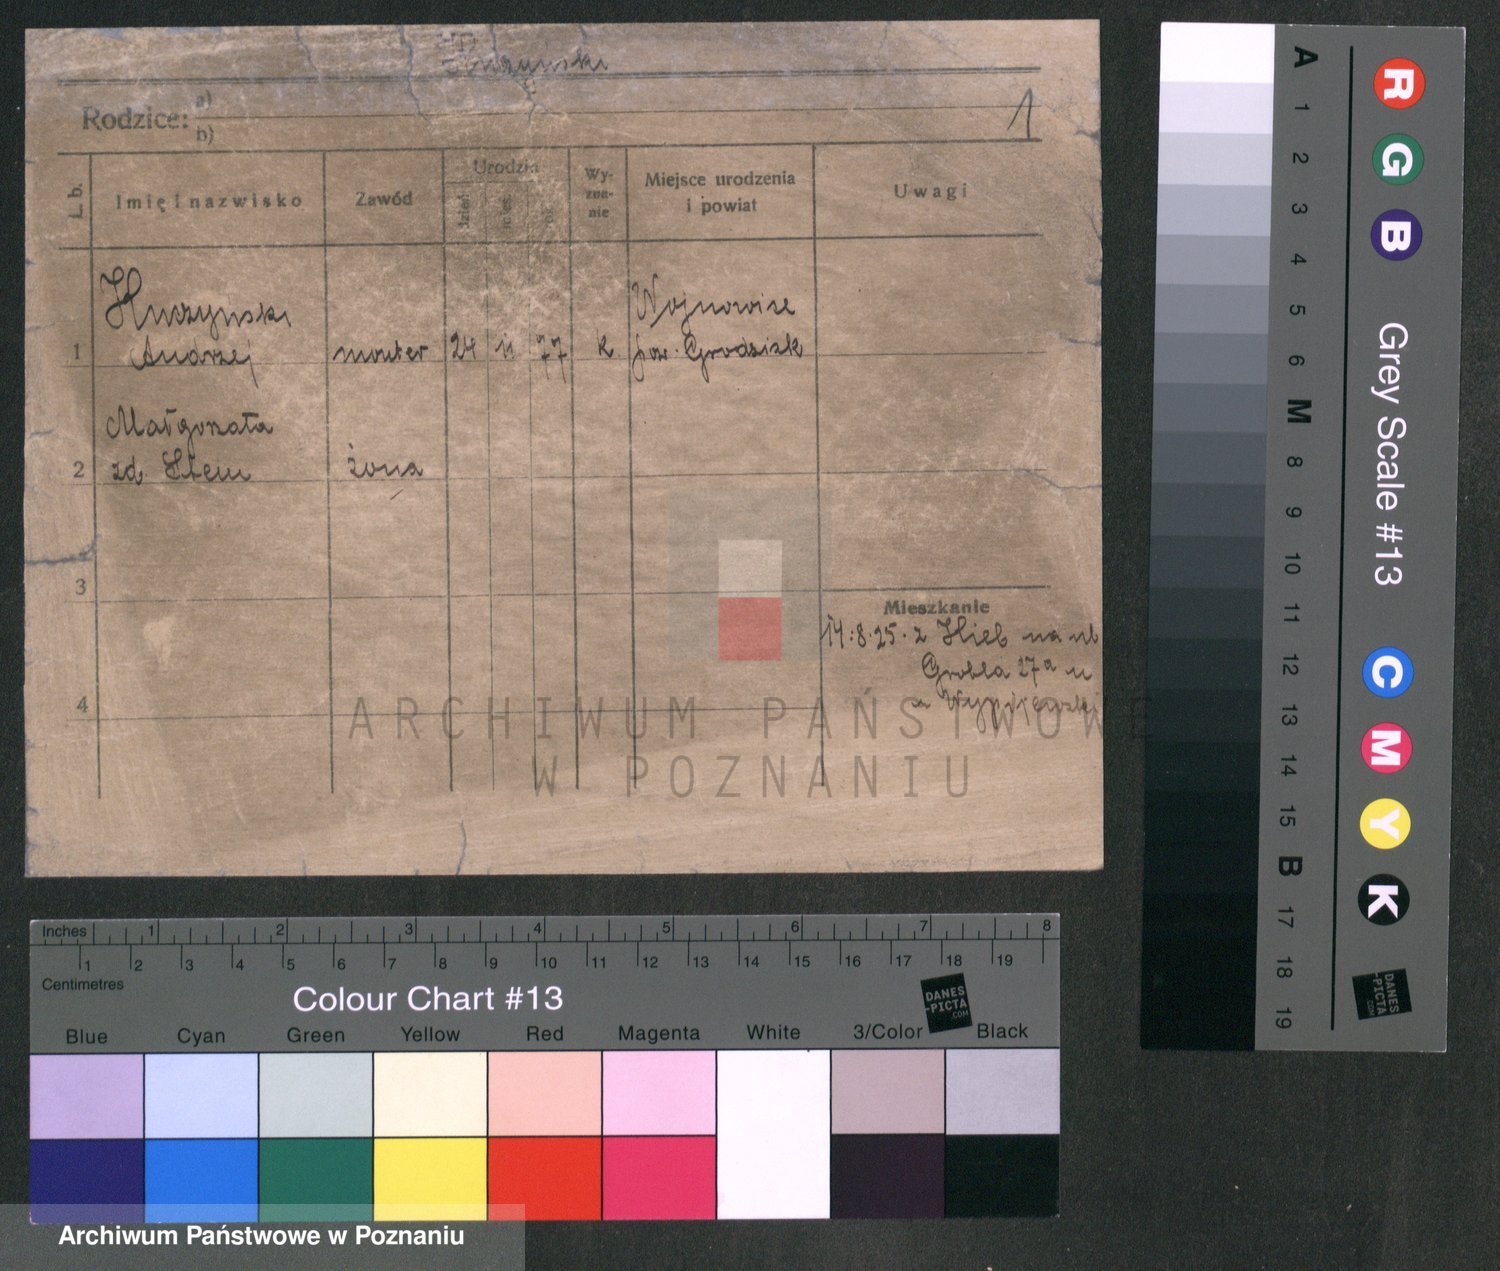 Rodzice: a)
b)
1
L. b.
Imię i nazwisko
Zawód
Urodzin
dzień
mies.
rok
Wy-
zna-
nie
Miejsce urodzenia
i powiat
Uwagi
Huczyński
Wojnowice
1 Andrzej monter 24 11 77 k pow. Grodzisk
Małgorzata
2 zd. Stein żona
3
Mieszkanie
14.8.25. z na ul
Grobla 27a u
4
ARCHIWUM PAŃSTWOWE
W POZNANIU
Inches 1 2 3 4 5 6 7 8
1 2 3 4 5 6 7 8 9 10 11 12 13 14 15 16 17 18 19
Centimetres
Colour Chart #13
DANES
-PICTA
.COM
Blue Cyan Green Yellow Red Magenta White 3/Color Black
Archiwum Państwowe w Poznaniu
A 1 2 3 4 5 6 M 8 9 10 11 12 13 14 15 B 17 18 19
R G B
Grey Scale #13
C M Y K
DANES
-PICTA
.COM